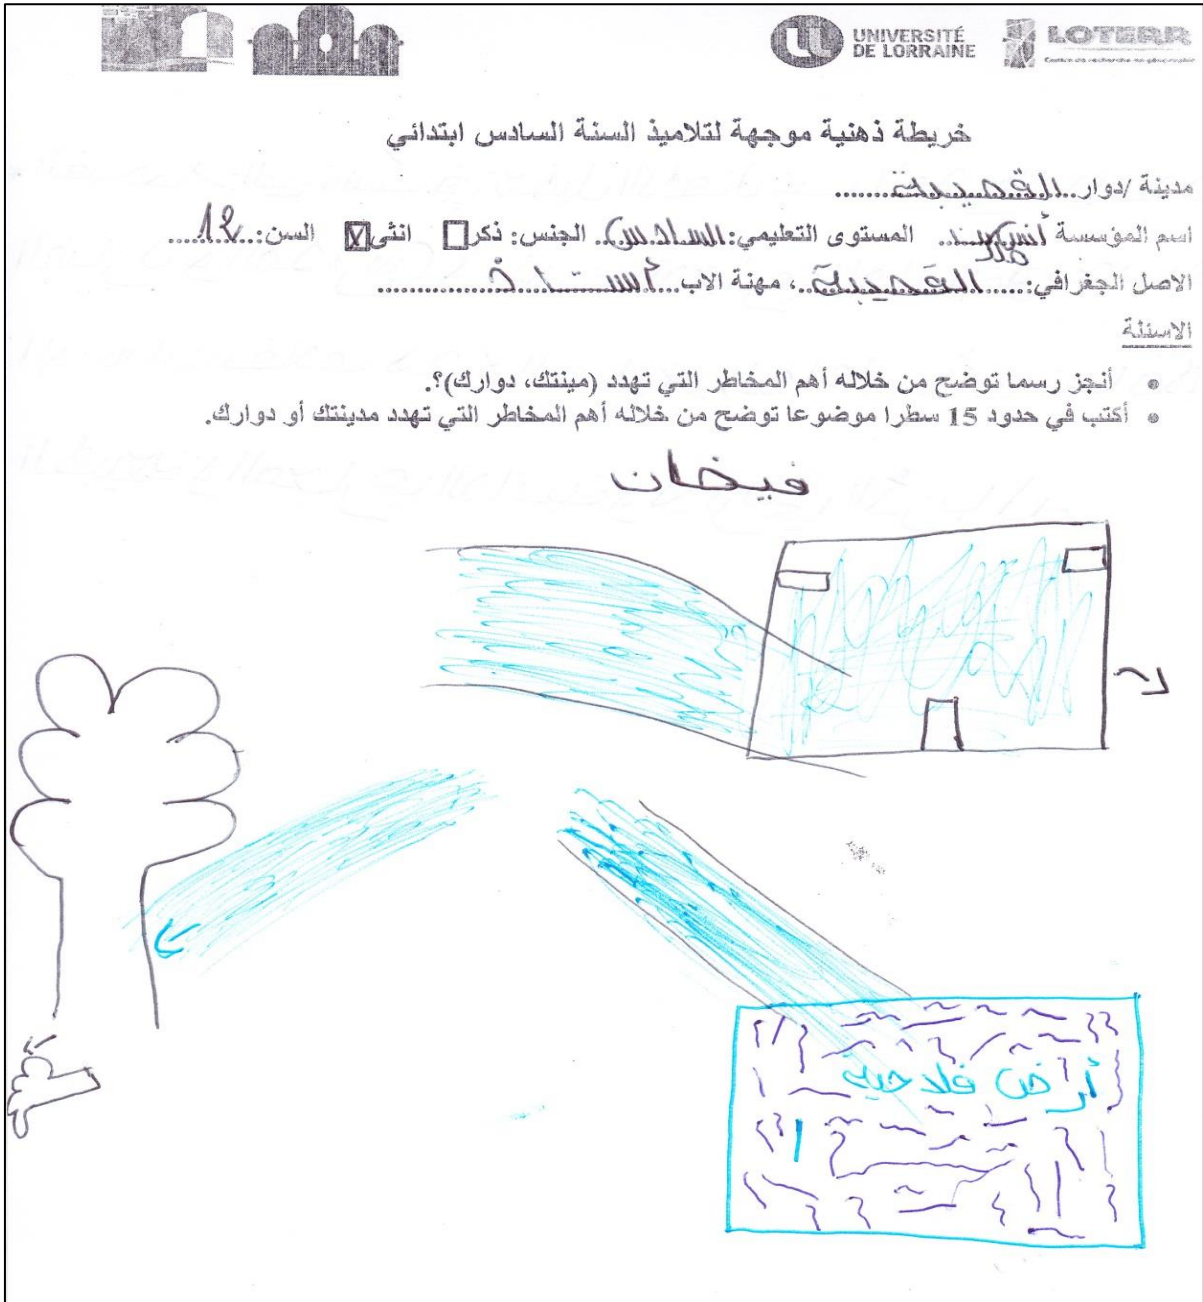 UNIVERSITÉ
DE LORRAINE
LOTERR
Centre de recherche en géographie
خريطة ذهنية موجهة لتلاميذ السنة السادس ابتدائي
مدينة /دوار..القصيبة..........
اسم المؤسسة المستوى التعليمي:السادس.. الجنس: ذكر☐ انثى☒ السن:..12......
الاصل الجغرافي:......القصيبة..، مهنة الاب...أستاذ...............
الاسئلة
• أنجز رسما توضح من خلاله أهم المخاطر التي تهدد (مينتك، دوارك)؟.
• أكتب في حدود 15 سطرا موضوعا توضح من خلاله أهم المخاطر التي تهدد مدينتك أو دوارك.
فيضان
أرض فلاحية